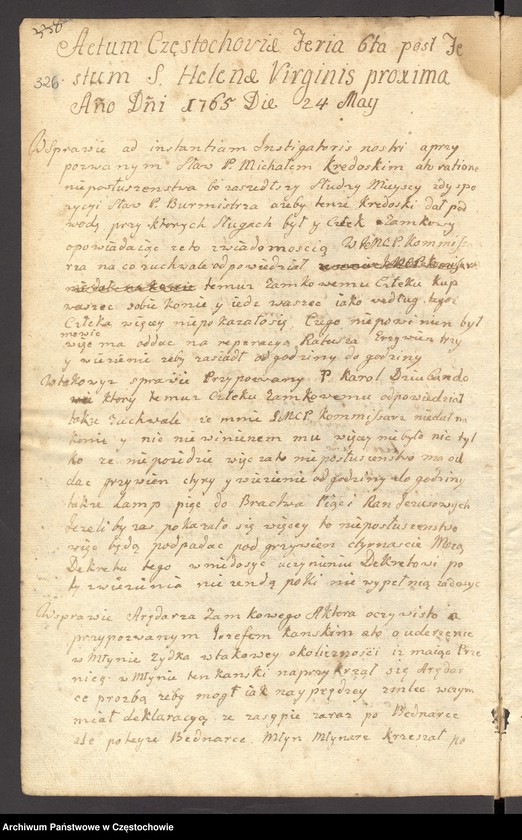 326.
Actum Częstochoviæ Feria 6ta post Fe
stum S. Helenæ Virginis proxima
Año Dñi 1765 Die 24 May
W Sprawie ad instantiam Instigatoris nostri a przy
pozwanym Sław P. Michałem Kredoskim ato ratione
nieposłuszenstwa bo zaszedłszy Słudzy Mieyscy z dyspo
zycyi Sław P. Burmistrza ażeby tenże Kredoski dał pod
wodę przy ktorych sługach był y Człek Zamkowy
opowiadaiąc że to z wiadomoscią W JMCP Kommiss
rza na co zuchwale odpowiedział
temuż Zamkowemu Człeku kup
waszec sobie konie y iedz waszec iako według tegoż
Człeka więcey niepokazałosię Czego niepowinien był
mowic
więc ma oddac na reperacyą Ratusza Grzywien trzy
y więzienie żeby zasiadł od godziny do godziny
W takowyż sprawie Przypozwany P. Karol Dziubando
ktory temuż Człeku Zamkowemu odpowiedział
także Zuchwale że mnie JMCP Kommissarz niedał na
konie y nic niewinienem mu więcey niebyło nic tyl
ko że niepoiedzie więc zato nieposłuszenstwo ma od
dac grzywien cztyry y więzienie od godziny do godziny
także Lamp pięc do Bractwa Pięci Ran Jezusowych
Jezeli by zas pokazało się więcey to nieposłuszenstwo
więc będą podpadac pod grzywien czternascie Mocą
Dekretu tego w niedosyc uczynieniu Dekretowi po
ty z więzienia nie zendą poki nie wypełnią zadosyc
W sprawie Arędarza Zamkowego Aktora oczywisto a
przypozwanym Jozefem Kanskim ato o uderzenie
w Młynie Zydka w takowey okolicznosci iż maiąc Psze
nicę w Młynie ten Kanski naprzykrzał się Arędar
ce prozbą żeby mogł iak nayprędzey zmlec w czym
miał deklaracyą że zasypie zaraz po Bednarce
Ale po teyże Bednarce Młyn Młynarz krzesał po
Archiwum Państwowe w Częstochowie